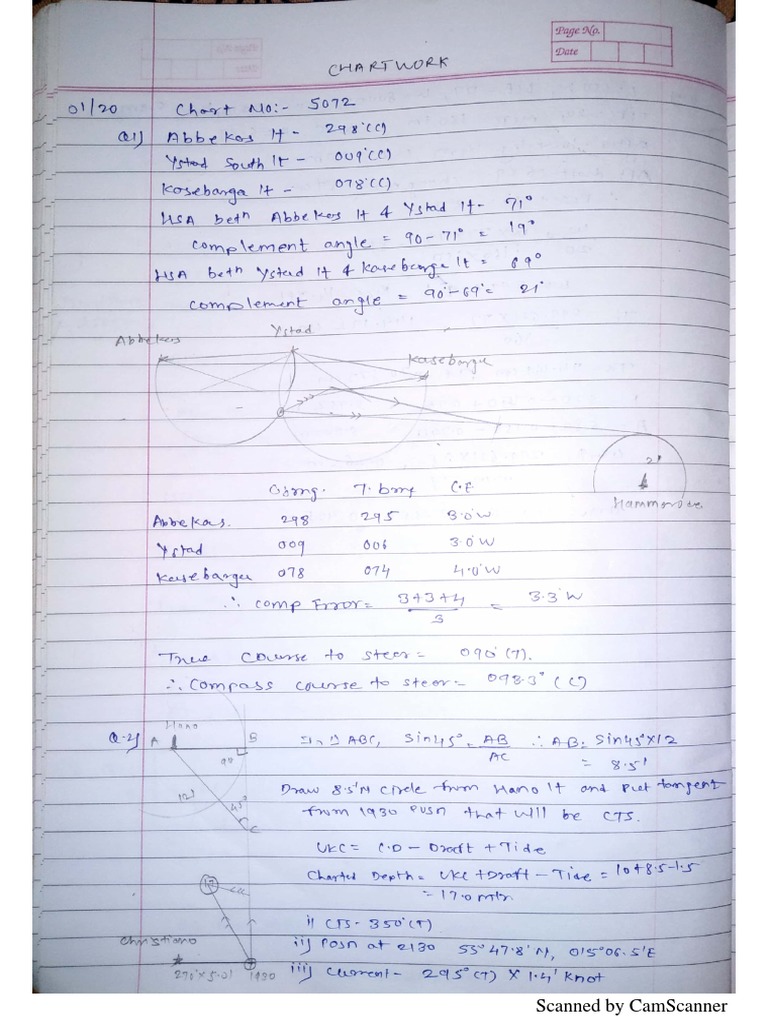 Page No.
Date
CHARTWORK
01/20 Chart No:- 5072
Q1) Abbekas lt - 298°(C)
Ystad South lt - 009°(C)
Kasebarga lt - 078°(C)
HSA betn Abbekas lt & Ystad lt- 71°
complement angle = 90-71° = 19°
HSA betn Ystad lt & Kasebarga lt = 69°
complement angle = 90°-69°= 21°
Abbekas
Ystad
Kasebarga
2'
Hammerode
Cbrng. T.brng C.E
Abbekas. 298 295 3.0°W
Ystad 009 006 3.0°W
Kasebarga 078 074 4.0°W
∴ comp Error = 3+3+4 / 3 = 3.3°W
True course to steer = 090°(T).
∴ Compass course to steer = 098.3°(C)
Q.2)
Hano
A B
90
12'
45°
C
In △ ABC, Sin45° = AB / AC ∴ AB = Sin45° X 12
= 8.5'
Draw 8.5'M circle from Hano lt and Put tangent
from 1930 Posn that will be CTS.
UKC = C.D - Draft + Tide
Charted Depth = UKC + Draft - Tide = 10+8.5-1.5
= 17.0 mtr
i) CTS - 350°(T)
Christiano
ii) Posn at 2130 55° 47.8'N, 015° 06.5'E
270° x 5.0' 1930
iii) Current - 295°(T) X 1.4' Knot
Scanned by CamScanner